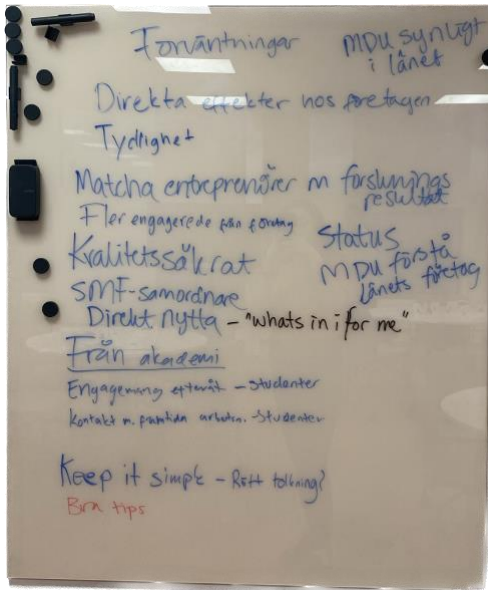 Förväntningar
MDU synligt
i länet
Direkta effekter hos företagen
Tydlighet
Matcha entreprenörer m forsknings
resultat
Fler engagerade från företag
Status
Kvalitetssäkrat
MDU förstå
länets företag
SMF-samordnare
Direkt nytta - "whats in i for me"
Från akademi
Engagemang efteråt - studenter
Kontakt m. framtida arbetsn. - studenter
Keep it simple - Rätt tolkning?
Bra tips